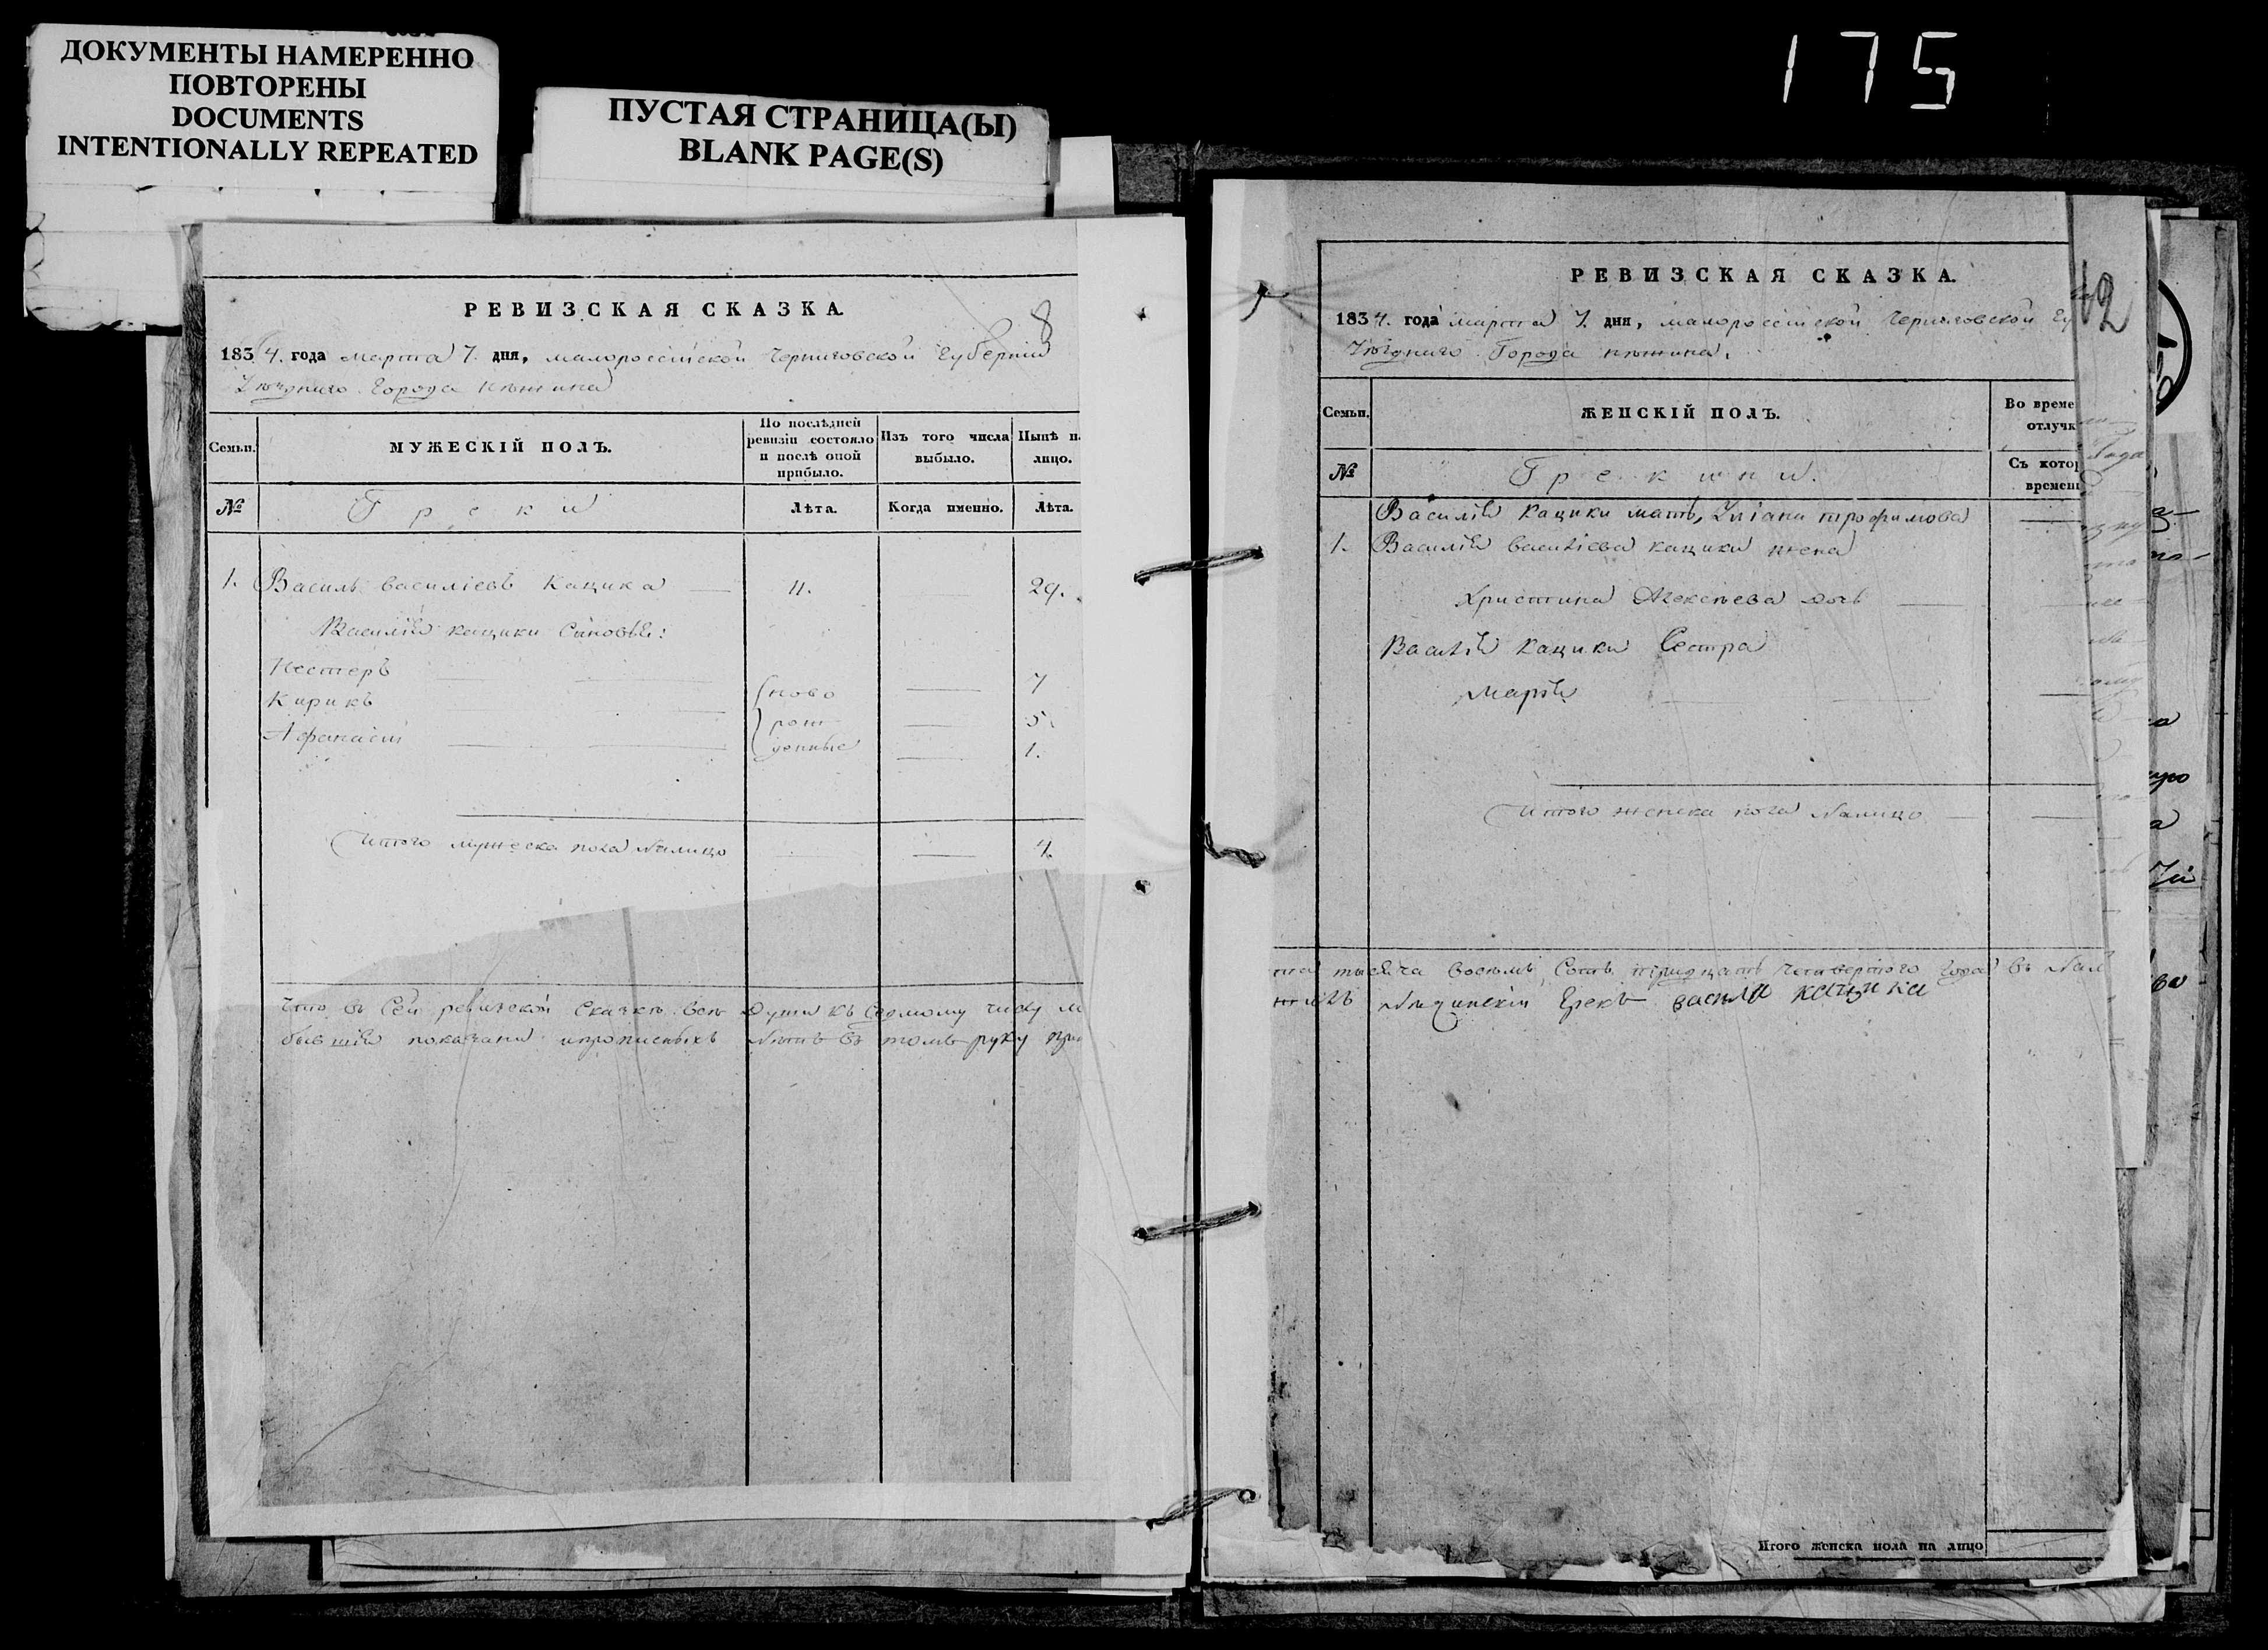 ДОКУМЕНТЫ НАМЕРЕННО
ПОВТОРЕНЫ
DOCUMENTS
INTENTIONALLY REPEATED
ПУСТАЯ СТРАНИЦА(Ы)
BLANK PAGE(S)
175
8
РЕВИЗСКАЯ СКАЗКА.
1834. года марта 7. дня, малороссійской Черниговской Губерніи
Уѣзднаго Города Нѣжина
Семьи.
МУЖЕСКІЙ ПОЛЪ.
По послѣдней ревизіи состояло и послѣ оной прибыло.
Изъ того числа выбыло.
Нынѣ н. лицо.
№
Греки
Лѣта.
Когда именно.
Лѣта.
1. Василь Василіевъ Кацика 11. 29.
Василія Кацики Сыновья:
Нестеръ ново 7
Кирикъ рож 5.
Афанасій денные 1.
Итого мужеска пола налицо 4.
Что въ сей ревизской сказкѣ всѣ души къ седмому числу м
показаны и прописныхъ нѣтъ въ томъ руку при
42
РЕВИЗСКАЯ СКАЗКА.
1834. года марта 7. дня, малороссійской Черниговской Гу
Уѣзднаго Города Нѣжина.
Семьи.
ЖЕНСКІЙ ПОЛЪ.
Во време
отлучк
№
Гречкини.
Съ котор
времени
Василія Кацики мать, Уліана трофимова
1. Василія Василіева Кацики жена
Христина Алексѣева дочь
Василія Кацики Сестра
Марія
Итого женска пола налицо
тысяча восемь сотъ тридцать четвертого года въ
нѣжинскій Грекъ Василій Кацика
Итого женска пола на лицо